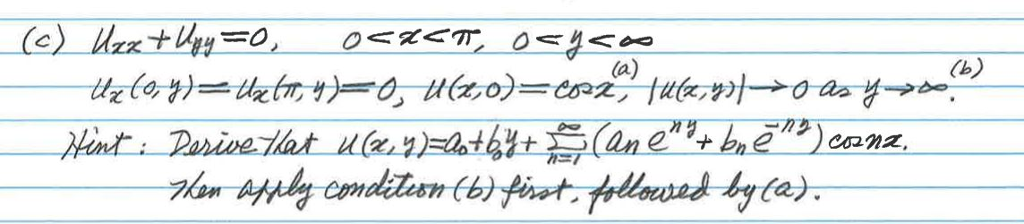 (c) Uxx + Uyy = 0, 0 < x < π, 0 < y < ∞
Ux(0, y) = Ux(π, y) = 0, U(x, 0) = cos x,^(a) |U(x, y)| → 0 as y → ∞.^(b)
Hint: Derive that U(x, y) = a₀ + b₀y + ∑_{n=1}^{∞} (aₙ e^{ny} + bₙ e^{-ny}) cos nx.
Then apply condition (b) first, followed by (a).